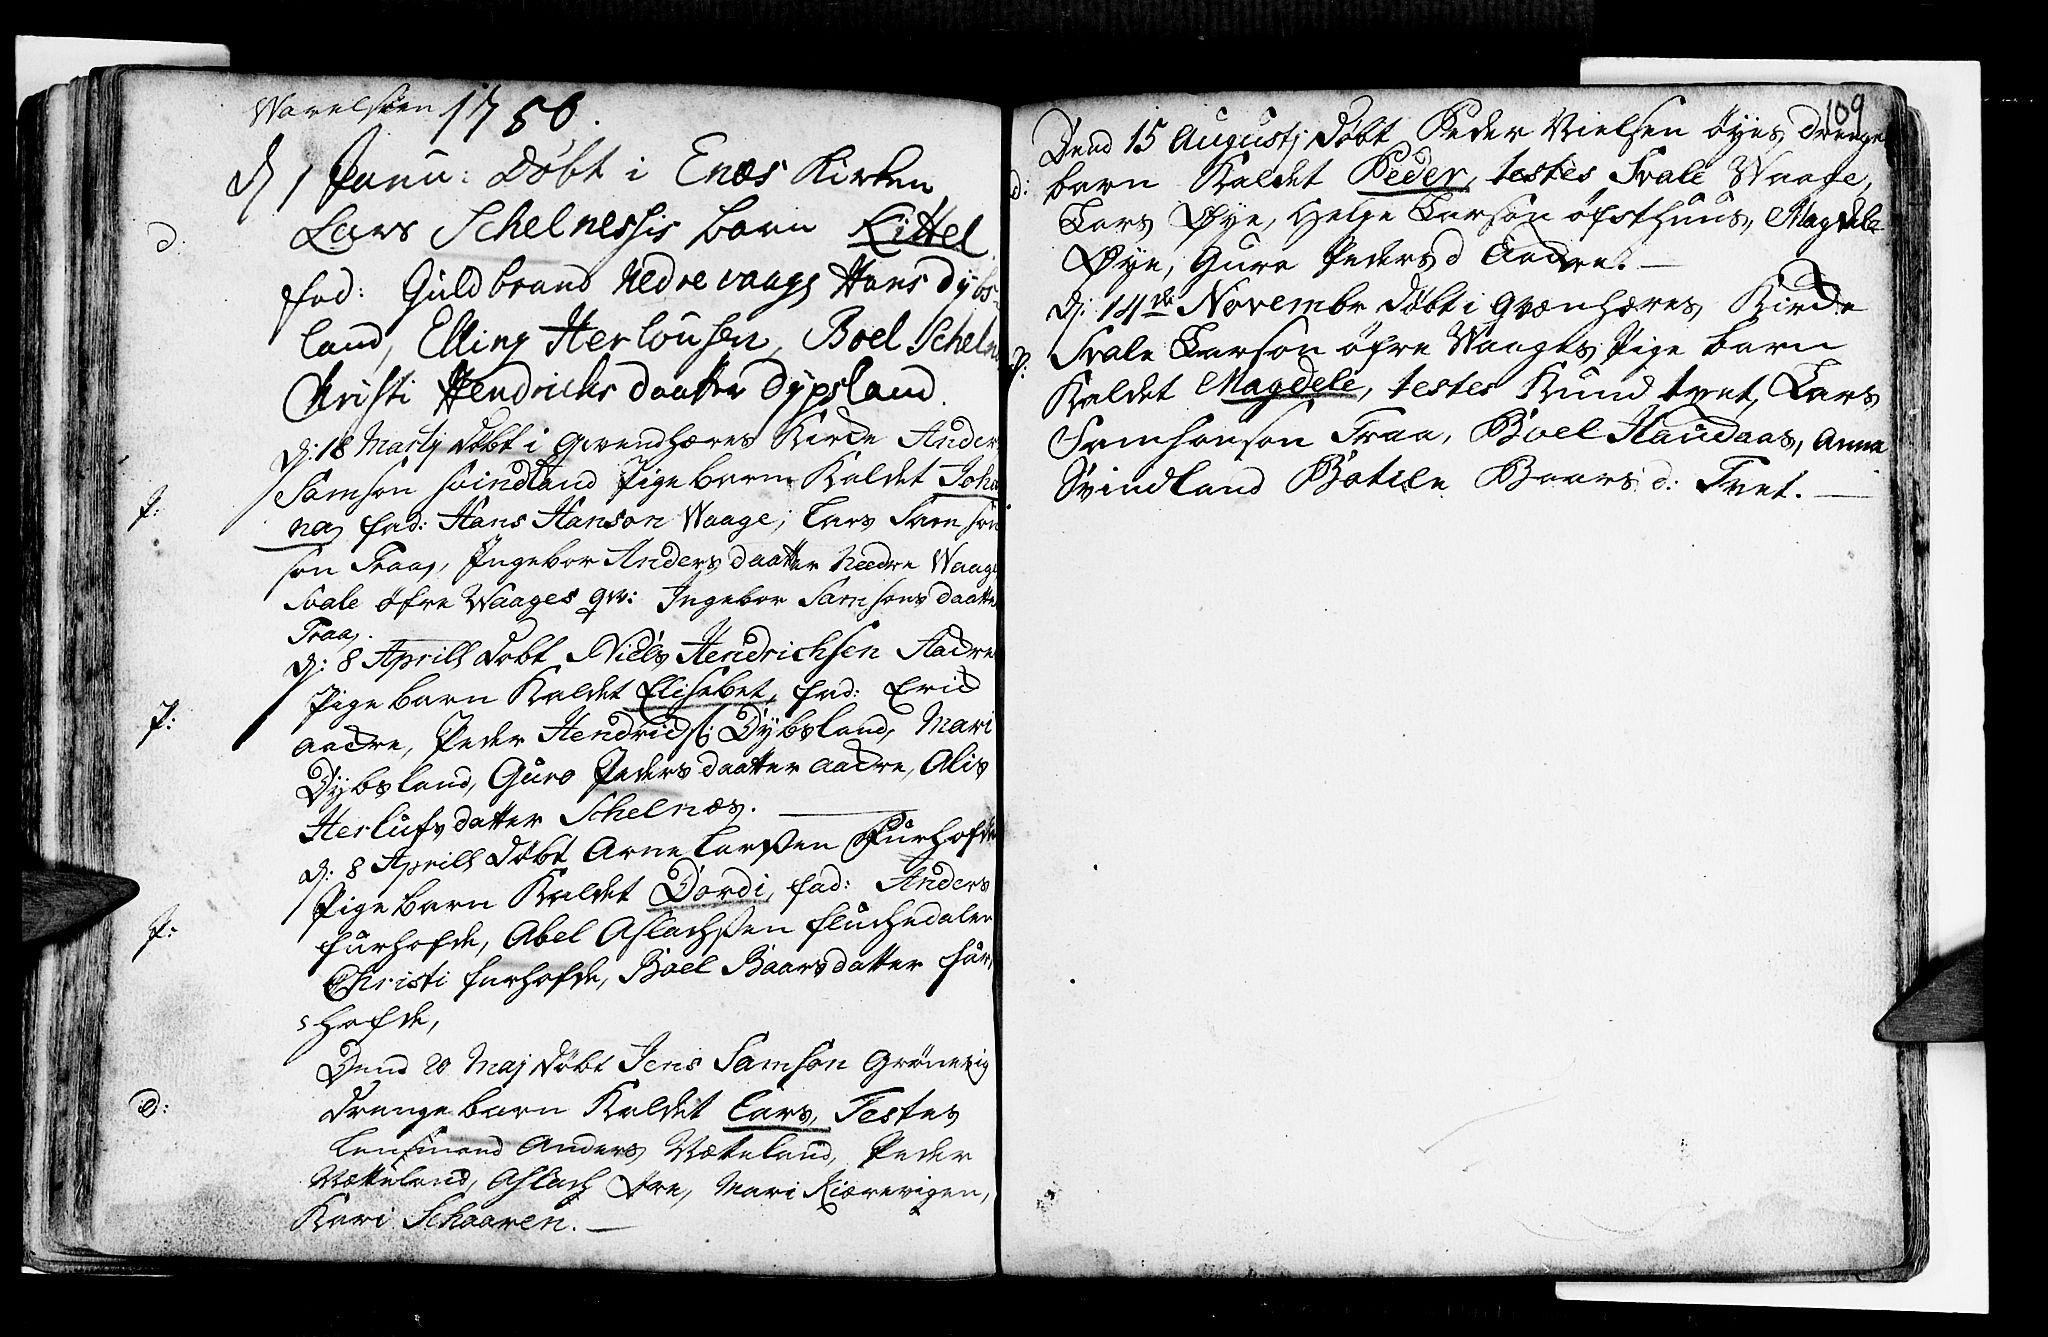 Warelsöen 1750.
D 1 Janu: Döbt i Enæs Kirken
d. Lars Schelnessis barn Kittel
fad: Guldbrand Nedrevaags Hans Dybs-
land, Elling Herlousen, Boel Scheln
Christi Hendrichs daatter Dypsland.
D: 18 Martj döbt i Qvendhæres Kirche Anders
Samson Svindland Pige barn Kaldet Joha
P: na, fad: Hans Hanson Waage, Lars Samson
son Traa, Ingebor Anders daatter Nedre Waage
Svale öfre Waages qv: Ingebor Samsons daatter
Traa.
D: 8 Aprill döbt Niels Hendrichsen Aadre
Pige barn Kaldet Elisebet, fad: Erich
P: Aadre, Peder Hendrichs: Dybsland, Mari
Dybsland, Guro Peders daatter Aadre, Alis
Herlufs datter Schelnæs.
D: 8 Aprill döbt Arne Larssen Furhofde
Pige barn Kaldet Dordi, fad: Anders
P: furhofde, Abel Aslachssen fluchedalen
Christi furhofde, Boel Baarsdatter fur
hofde,
Dend 20 Maj döbt Jens Samson Grönevig
d: Drenge barn Kaldet Lars, Testes
Lensmand Anders Wætteland, Peder
Wætteland, Aslach Øre, Mari Kiærevigen,
Kari Schaaren.
109
Dend 15 Augustj döbt Peder Nielsen öÿes drenge
d: barn Kaldet Peder, testes Svale Waage,
Lars Øÿe, Helge Larson öfsthuus, Magdele
Øÿe, Gure Peders d Aadre.
D: 14de Novembr döbt i Qvænhæres Kirche
P: Svale Larson öfre Waages Pige barn
Kaldet Magdele, testes Knud tvet, Lars
Samsonson Traa, Boel Haudaas, Anna
Svindland Botile Baars d: Tvet.